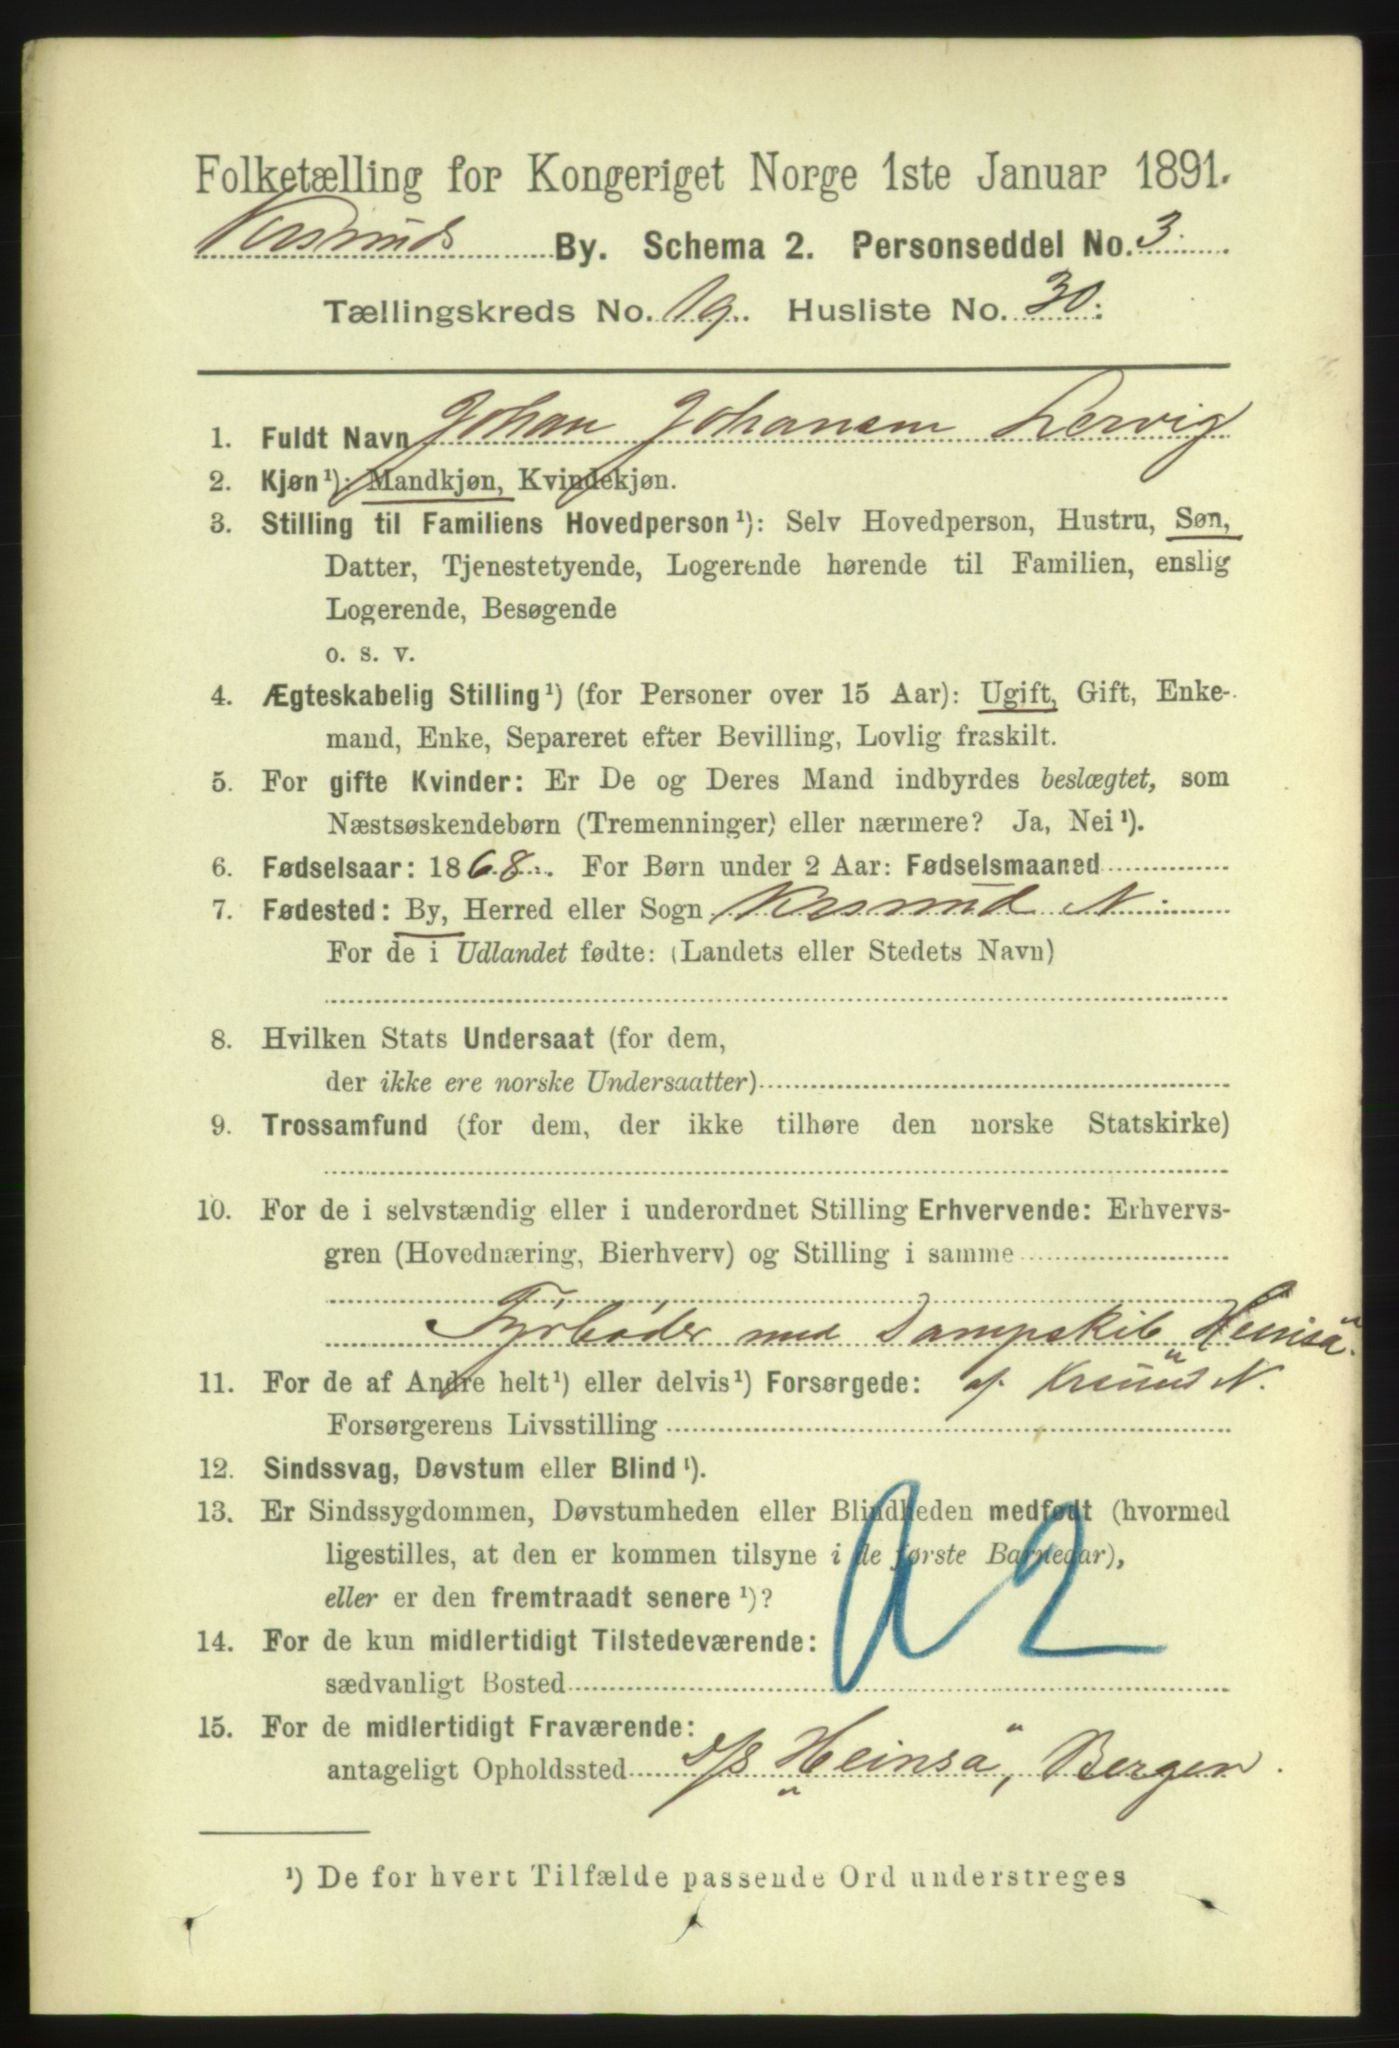 Folketælling for Kongeriget Norge 1ste Januar 1891.
Krsunds By. Schema 2. Personseddel No. 3.
Tællingskreds No. 19. Husliste No. 30.
1. Fuldt Navn Johan Johansen Lervig
2. Kjøn¹): Mandkjøn, Kvindekjøn.
3. Stilling til Familiens Hovedperson¹): Selv Hovedperson, Hustru, Søn,
Datter, Tjenestetyende, Logerende hørende til Familien, enslig
Logerende, Besøgende
o. s. v.
4. Ægteskabelig Stilling¹) (for Personer over 15 Aar): Ugift, Gift, Enke-
mand, Enke, Separeret efter Bevilling, Lovlig fraskilt.
5. For gifte Kvinder: Er De og Deres Mand indbyrdes beslægtet, som
Næstsøskendebørn (Tremenninger) eller nærmere? Ja, Nei¹).
6. Fødselsaar: 1868. For Børn under 2 Aar: Fødselsmaaned
7. Fødested: By, Herred eller Sogn Krsund N.
For de i Udlandet fødte: (Landets eller Stedets Navn)
8. Hvilken Stats Undersaat (for dem,
der ikke ere norske Undersaatter)
9. Trossamfund (for dem, der ikke tilhøre den norske Statskirke)
10. For de i selvstændig eller i underordnet Stilling Erhvervende: Erhvervs-
gren (Hovednæring, Bierhverv) og Stilling i samme
Fyrbøder med Dampskib „Heinsä"
11. For de af Andre helt¹) eller delvis¹) Forsørgede: af Krsund N.
Forsørgerens Livsstilling
12. Sindssvag, Døvstum eller Blind¹).
13. Er Sindssygdommen, Døvstumheden eller Blindheden medfødt (hvormed
ligestilles, at den er kommen tilsyne i de første Barneaar),
eller er den fremtraadt senere¹)?
14. For de kun midlertidigt Tilstedeværende:
sædvanligt Bosted
15. For de midlertidigt Fraværende:
antageligt Opholdssted d/s „Heinsä", Bergen.
¹) De for hvert Tilfælde passende Ord understreges